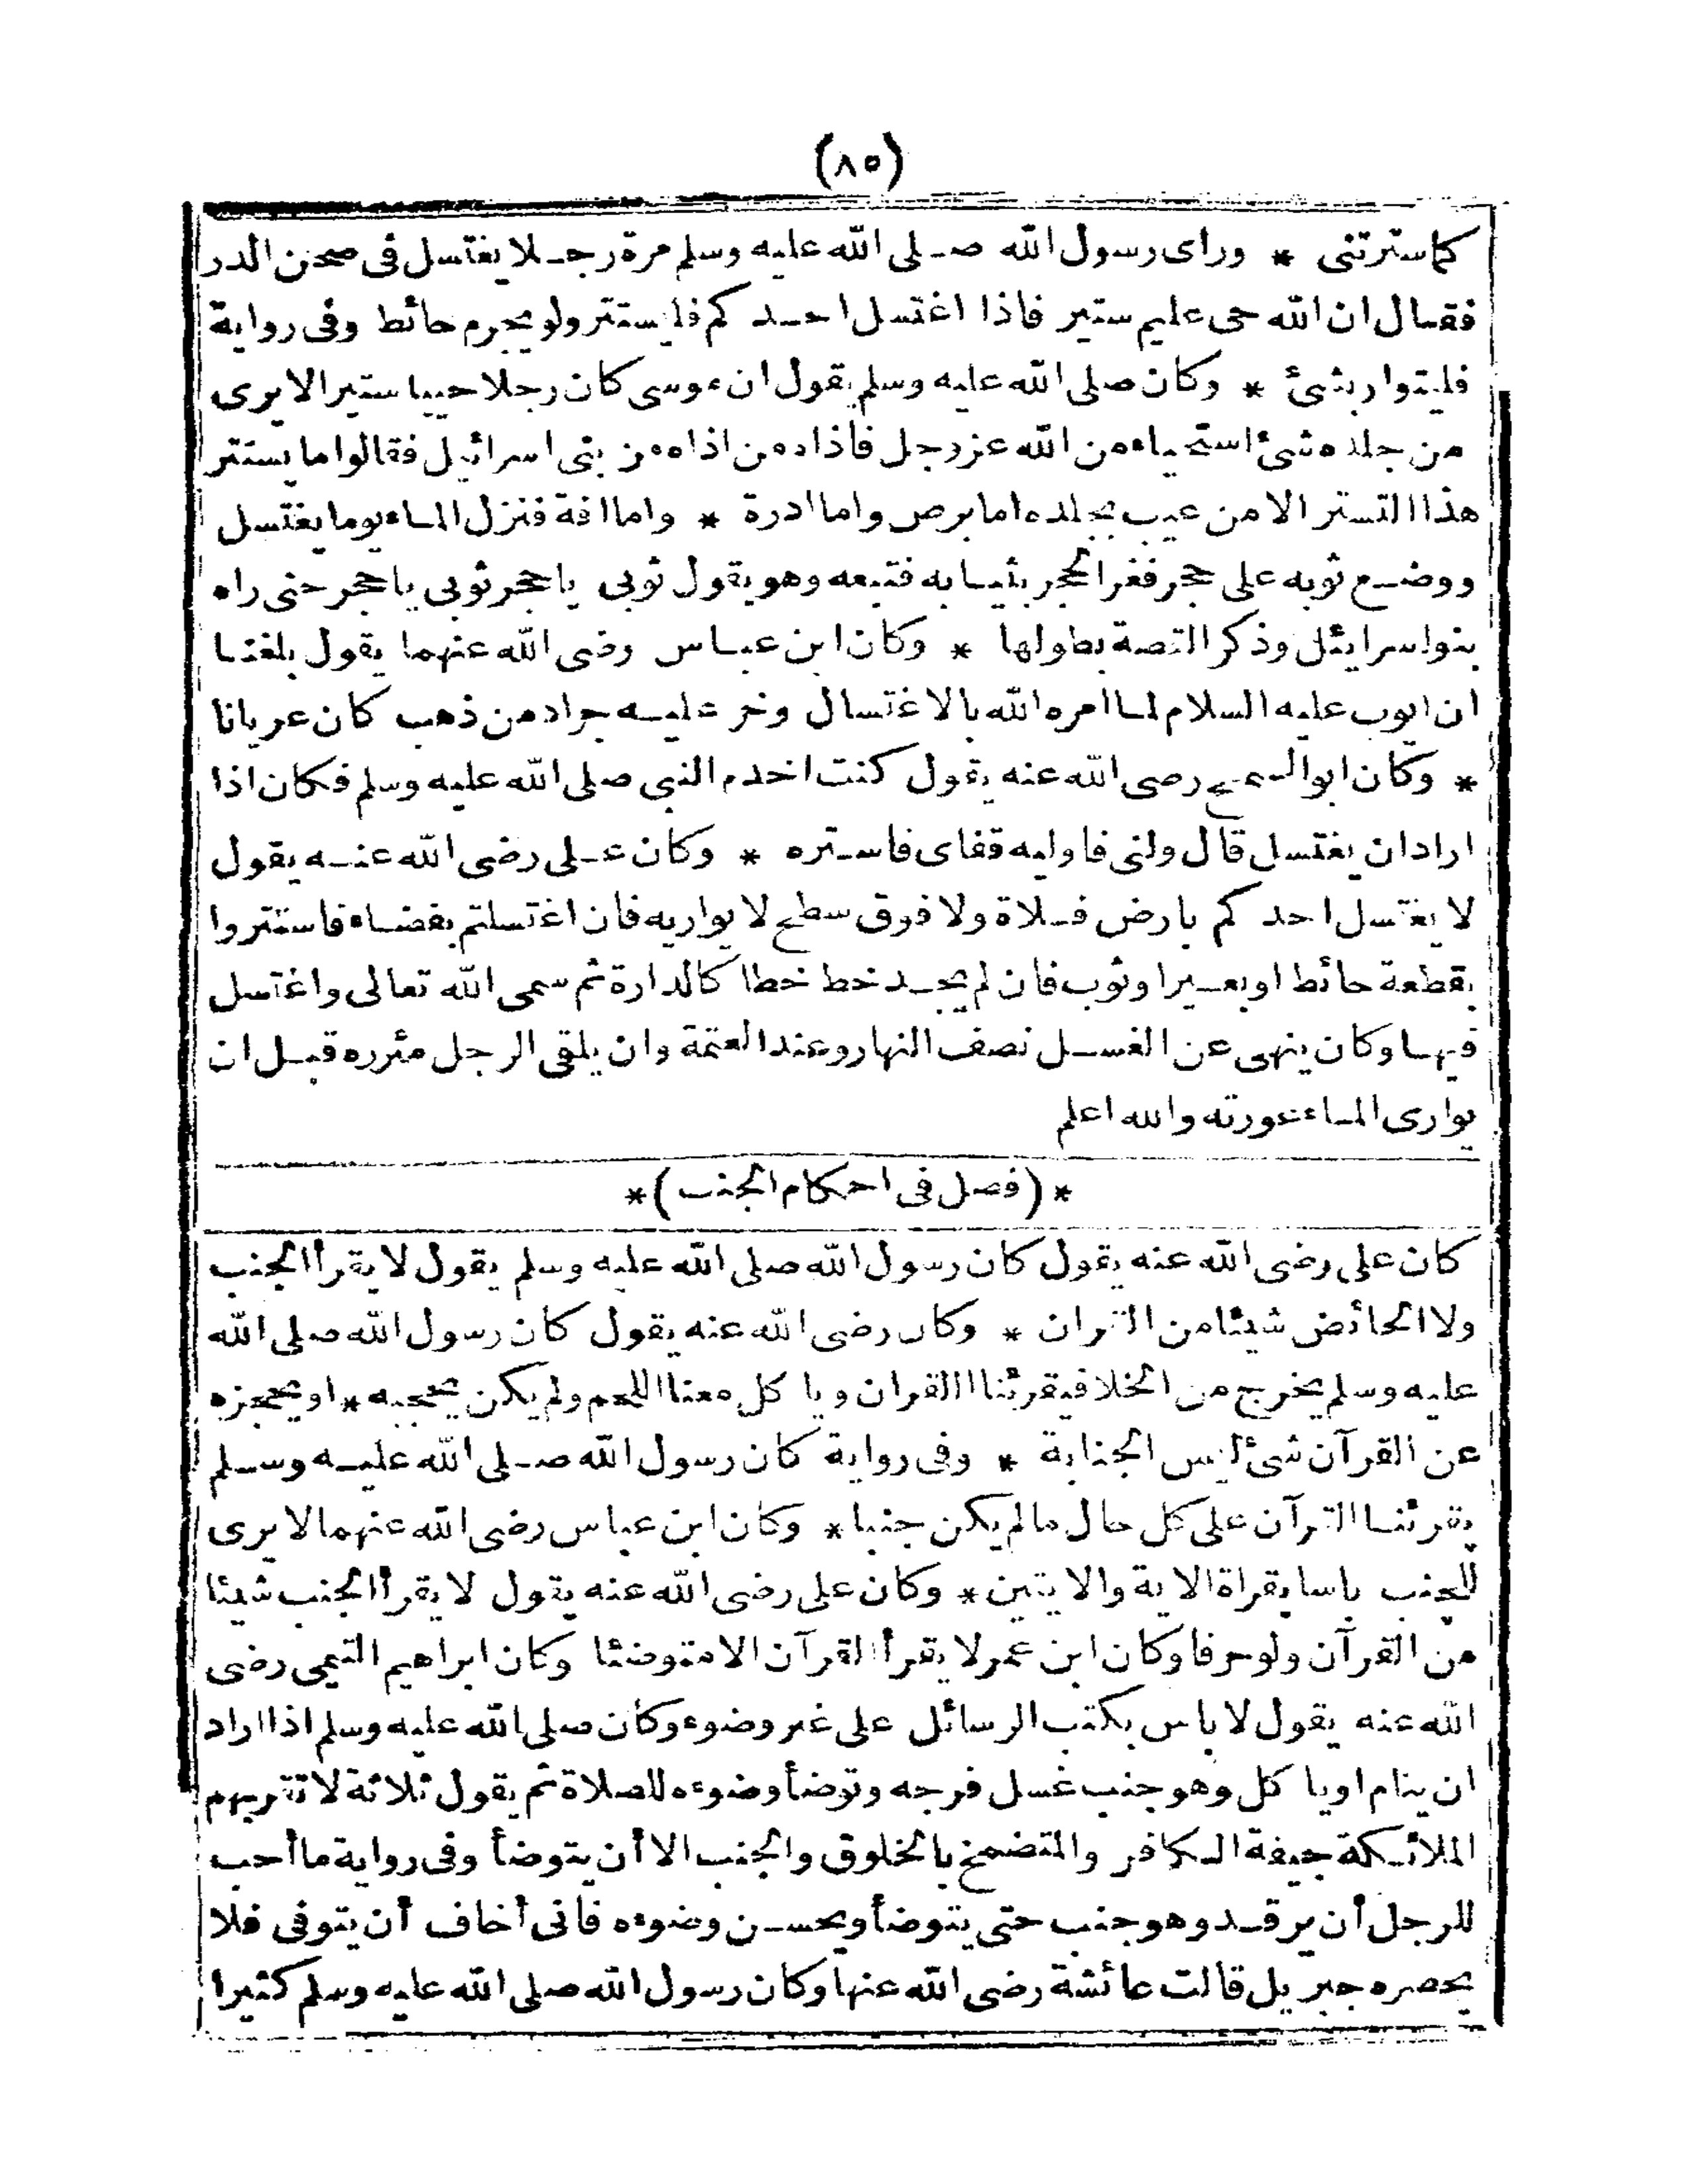 (٨٥)
كما سترتنى * وراى رسول الله صلى الله عليه وسلم مرة رجلا يغتسل فى صحن الدر
فقال ان الله حى عليم ستير فاذا اغتسل احدكم فليستتر ولو بجرم حائط وفى رواية
فليتوار بشئ * وكان صلى الله عليه وسلم يقول ان موسى كان رجلا حييا ستيرا لا يرى
من جلده شئ استحياء من الله عز وجل فاذاه من اذاه من بنى اسرائيل فقالوا ما يستتر
هذا التستر الا من عيب بجلده اما برص واما ادرة * واما افة فنزل الماء يوما يغتسل
ووضع ثوبه على حجر ففر الحجر بثيابه فتبعه وهو يقول ثوبى يا حجر ثوبى يا حجر حتى راه
بنو اسرايئل وذكر القصة بطولها * وكان ابن عباس رضى الله عنهما يقول بلغنا
ان ايوب عليه السلام لما امره الله بالاغتسال وخر عليه جراد من ذهب كان عريانا
* وكان ابو السمح رضى الله عنه يقول كنت اخدم النبى صلى الله عليه وسلم فكان اذا
اراد ان يغتسل قال ولنى فاوليه قفاى فاستره * وكان على رضى الله عنه يقول
لا يغتسل احدكم بارض فلاة ولا فوق سطح لا يواريه فان اغتسلتم بفضاء فاستتروا
بقطعة حائط او بعير او ثوب فان لم يجد خط خطا كالدارة ثم سمى الله تعالى واغتسل
فيها وكان ينهى عن الغسل نصف النهار وعند العتمة وان يلقى الرجل مئزره قبل ان
يوارى الماء عورته والله اعلم
* (فصل فى احكام الجنب) *
كان على رضى الله عنه يقول كان رسول الله صلى الله عليه وسلم يقول لا يقرأ الجنب
ولا الحائض شيئا من القران * وكان رضى الله عنه يقول كان رسول الله صلى الله
عليه وسلم يخرج من الخلا فيقرئنا القران وياكل معنا اللحم ولم يكن يحجبه * او يحجزه
عن القرآن شئ ليس الجنابة * وفى رواية كان رسول الله صلى الله عليه وسلم
يقرئنا القرآن على كل حال ما لم يكن جنبا * وكان ابن عباس رضى الله عنهما لا يرى
للجنب باسا بقراة الاية والايتين * وكان على رضى الله عنه يقول لا يقرأ الجنب شيئا
من القرآن ولو حرفا وكان ابن عمر لا يقرأ القرآن الا متوضئا وكان ابراهيم التيمى رضى
الله عنه يقول لا باس بكتب الرسائل على غير وضوء وكان صلى الله عليه وسلم اذا اراد
ان ينام او ياكل وهو جنب غسل فرجه وتوضأ وضوءه للصلاة ثم يقول ثلاثة لا تقربهم
الملائكة جيفة الكافر والمتضمخ بالخلوق والجنب الا أن يتوضأ وفى رواية ما أحب
للرجل أن يرقد وهو جنب حتى يتوضأ ويحسن وضوءه فانى أخاف أن يتوفى فلا
يحصره جبريل قالت عائشة رضى الله عنها وكان رسول الله صلى الله عليه وسلم كثيرا